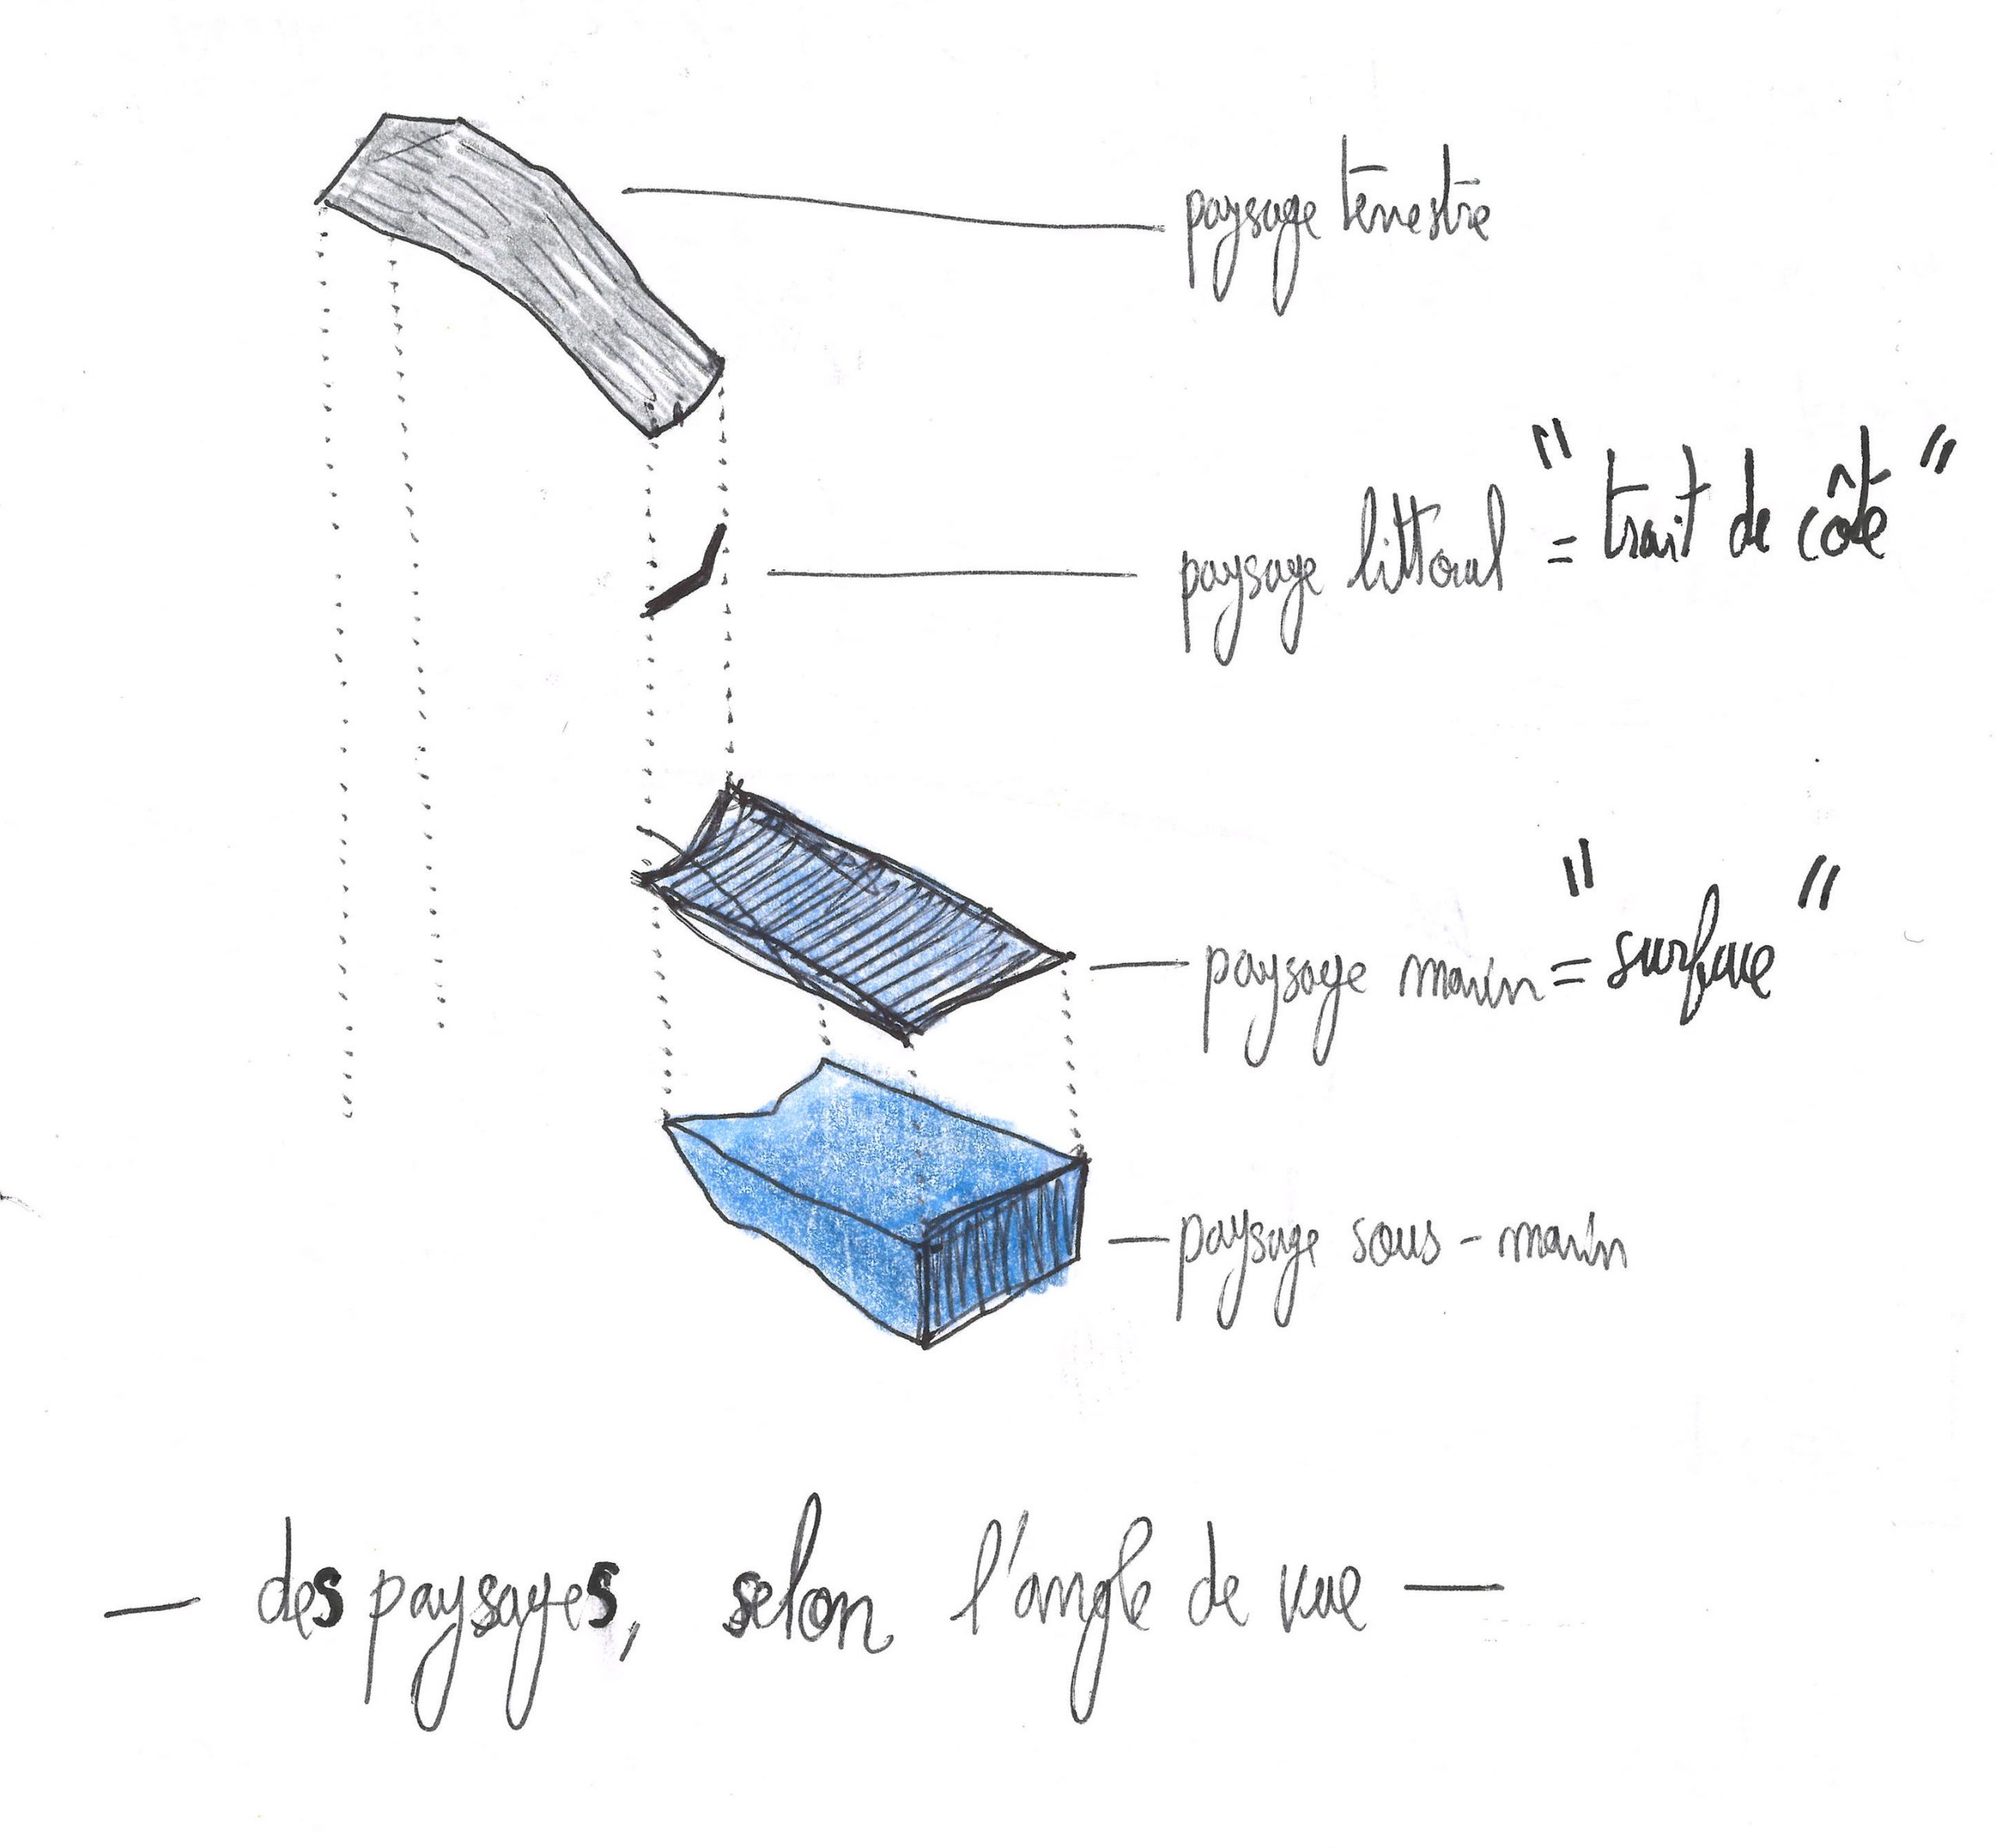 paysage terrestre
paysage littoral = "trait de côte"
paysage marin = "surface"
paysage sous-marin
— des paysages, selon l'angle de vue —